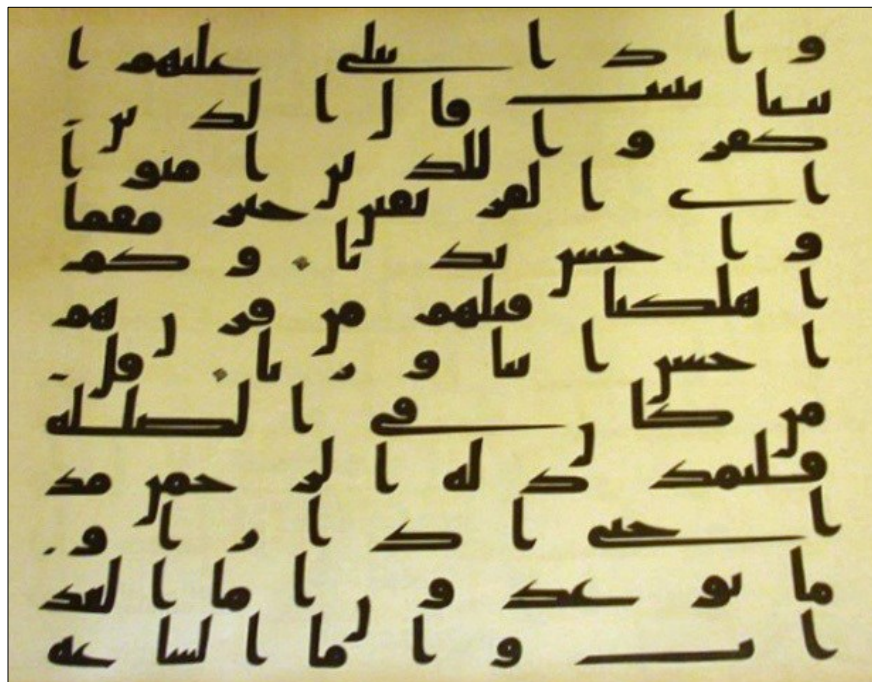 واذا تتلى عليهم ا
يتنا بينت قال الذين
كفروا للذين امنوا
اي الفريقين خير مقاما
واحسن نديا وكم
اهلكنا قبلهم من قرن هم
احسن اثثا وريا قل
من كان في الضللة
فليمدد له الرحمن مد
ا حتى اذا راو
ما يوعدون اما العذ
اب واما الساعة